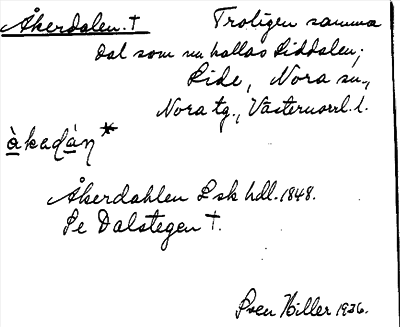 Åkerdalen. † Troligen samma
dal som nu kallas Liddalen;
Lide, Nora sn.,
Nora tg., Västernorrl. l.
àkadán*
Åkerdahlen L sk hdl. 1848.
Se Dalstegen †.
Sven Hiller 1936.